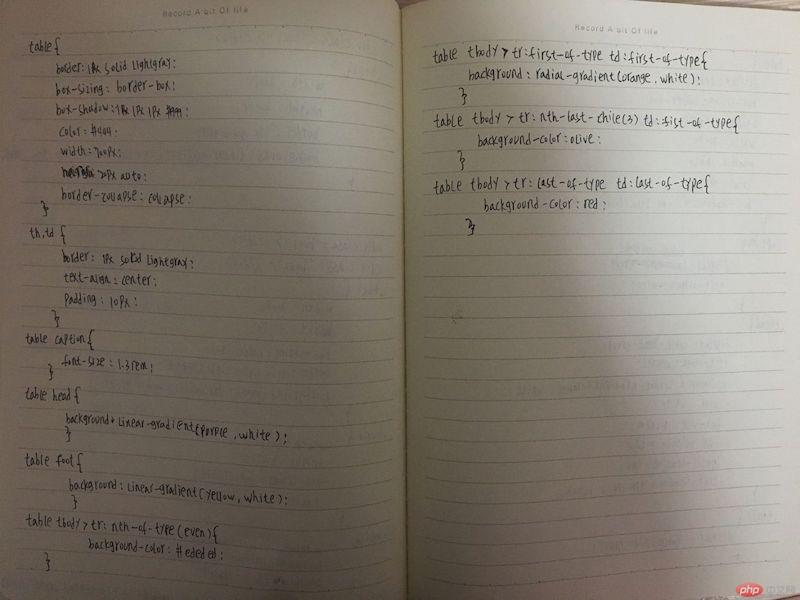 Record A bit Of life
table{
border: 1Px solid Lightgray;
box-sizing: border-box;
box-shadow: 1Px 1Px 1Px #999;
color: #444;
width: 700Px;
20Px auto;
border-collapse: collapse;
}
th,td {
border: 1Px solid Lightgray;
text-align: center;
Padding: 10Px;
}
table caption{
font-size: 1.3rem;
}
table head{
background: Linear-gradient(PurPle, white);
}
table foot{
background: Linear-gradient(yellow, white);
}
table tbody > tr: nth-of-type (even){
background-color: #ededed;
}
Record A bit Of life
table tbody > tr:first-of-type td:first-of-type{
background: radial-gradient(orange, white);
}
table tbody > tr: nth-last-chile(3) td:fist-of-type{
background-color: olive;
}
table tbody > tr: last-of-type td:last-of-type{
background-color: red;
}
php